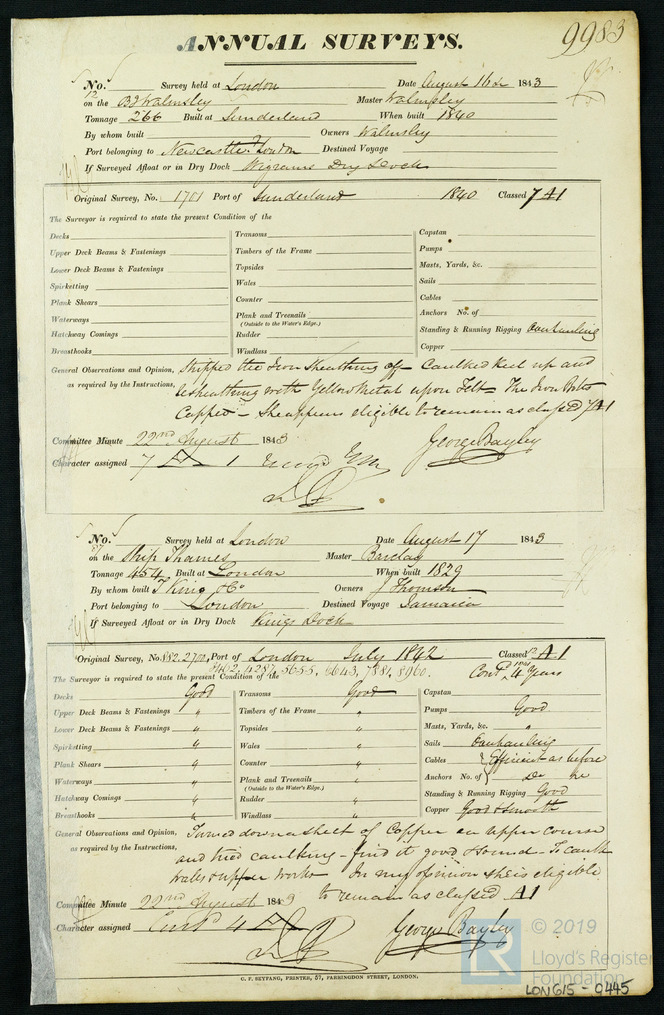 ANNUAL SURVEYS.
9983
No. 12 Survey held at London Date August 16th 1843
on the Bg Walmsley Master Walmsley
Tonnage 266 Built at Sunderland When built 1840
By whom built Owners Walmsley
Port belonging to Newcastle London Destined Voyage
If Surveyed Afloat or in Dry Dock Wigrams Dry Dock
Original Survey, No. 1701 Port of Sunderland 1840 Classed 7 A1
The Surveyor is required to state the present Condition of the
Decks Transoms Capstan
Upper Deck Beams & Fastenings Timbers of the Frame Pumps
Lower Deck Beams & Fastenings Topsides Masts, Yards, &c.
Spirketting Wales Sails
Plank Shears Counter Cables
Waterways Plank and Treenails Anchors No. of
(Outside to the Water's Edge.)
Hatchway Comings Rudder Standing & Running Rigging Overhauling
Breasthooks Windlass Copper
General Observations and Opinion, Stripped the Iron Sheathing off - Caulked Keel up and
as required by the Instructions, resheathing with Yellow Metal upon Felt - The Iron Bolts
Capped - She appears eligible to remain as classed 7 A1
Committee Minute 22nd August 1843 George Bayley
Character assigned 7 A 1
No. 57 Survey held at London Date August 17 1843
on the Ship Thames Master Barclay
Tonnage 454 Built at London When built 1829
By whom built T King & Co Owners J Thomson
Port belonging to London Destined Voyage Jamaica
If Surveyed Afloat or in Dry Dock Kings Dock
Original Survey, No. 882. 2700, Port of London July 1842 Classed A1
3402, 4387, 5655, 6643, 7881, 8960. Contd 4 Years
The Surveyor is required to state the present Condition of the
Decks Good Transoms Good Capstan
Upper Deck Beams & Fastenings " Timbers of the Frame " Pumps Good
Lower Deck Beams & Fastenings " Topsides " Masts, Yards, &c. "
Spirketting " Wales " Sails Overhauling
Plank Shears " Counter " Cables Efficient as before
Waterways " Plank and Treenails " Anchors No. of Do
(Outside to the Water's Edge.)
Hatchway Comings " Rudder " Standing & Running Rigging Good
Breasthooks " Windlass " Copper Good & Smooth
General Observations and Opinion, Turned down a sheet of Copper on upper course
as required by the Instructions, and tried caulking - find it good & sound - To caulk
wales & upper works - In my opinion she is eligible
to remain as classed A1
Committee Minute 22nd August 1843
Character assigned Contd 4 A George Bayley
C. F. SEYFANG, PRINTER, 57, FARRINGDON STREET, LONDON.
LR © 2019
Lloyd's Register
Foundation
LON615 - 0445